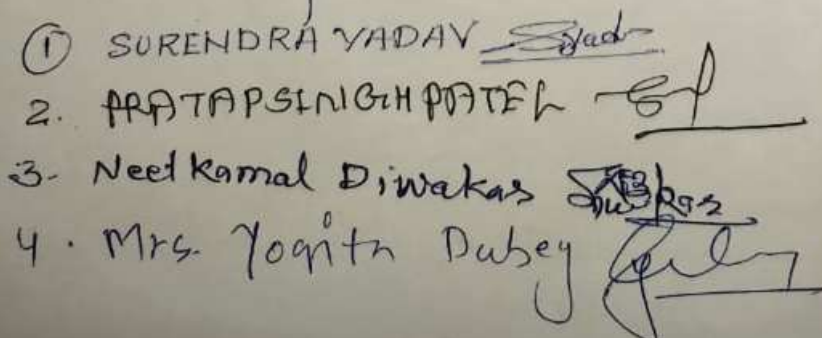 ① SURENDRA YADAV Syadav
2. PRATAPSINGH PATEL
3- Neelkamal Diwakar
4. Mrs. Yogita Dubey